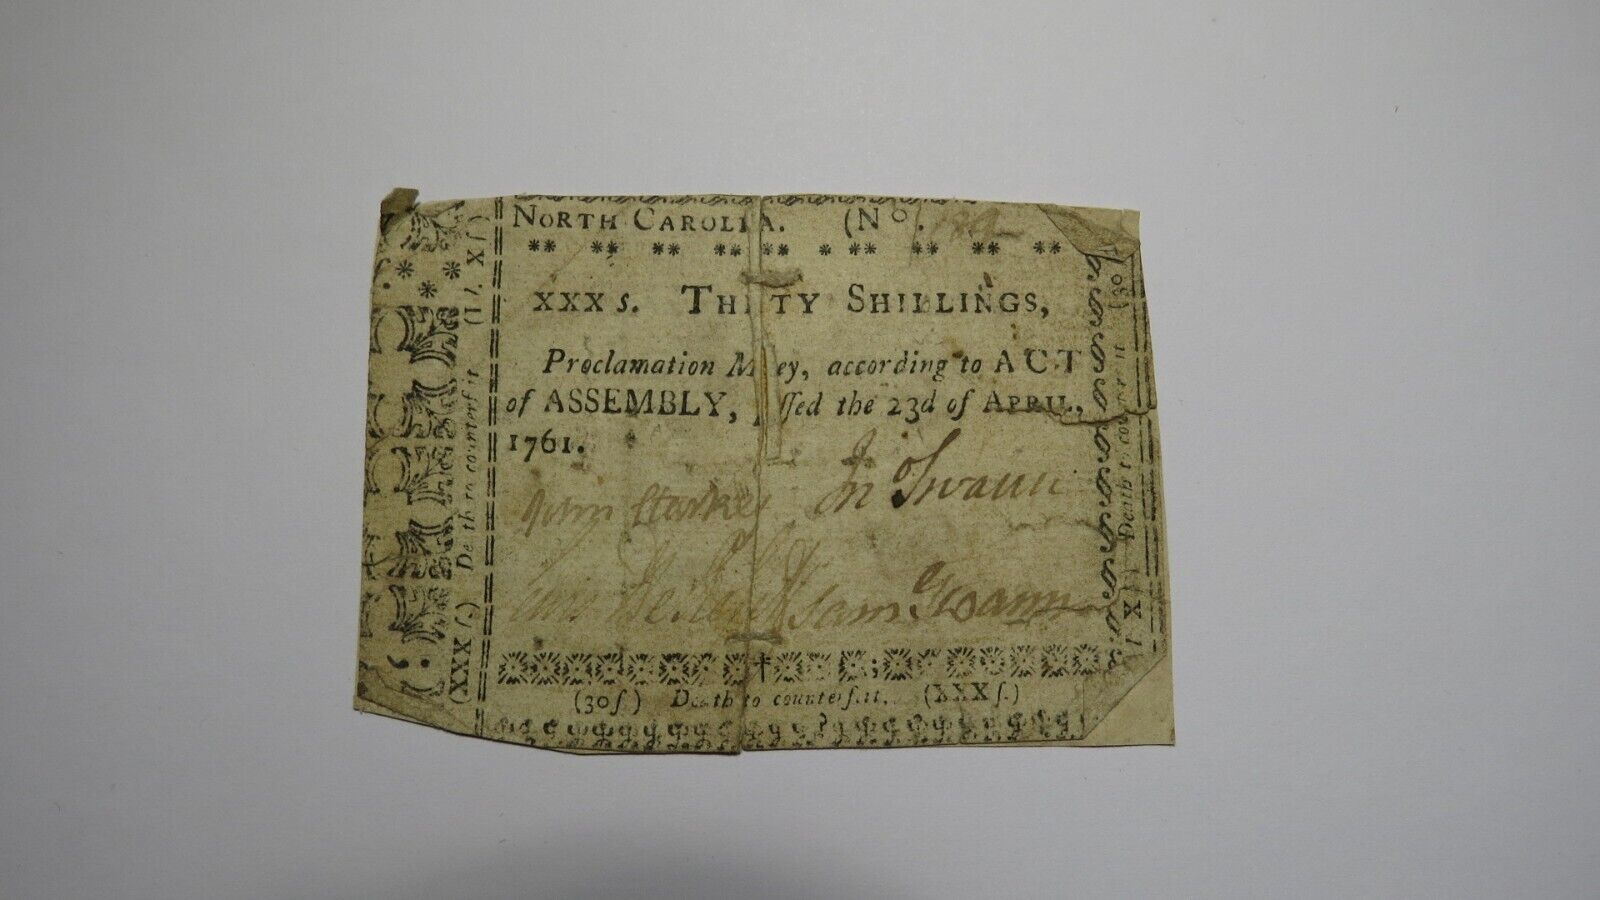 NORTH CAROLINA. (No. 182
XXX s. THIRTY SHILLINGS,
Proclamation Money, according to ACT
of ASSEMBLY, passed the 23d of APRIL,
1761.
John Starkey Jn Swann
Saml Swann
(30ſ) Death to counterfeit. (XXX ſ.)
(XXX ſ.) Death to counterfeit (1l. X ſ)
1l. X Death to counterfeit (30